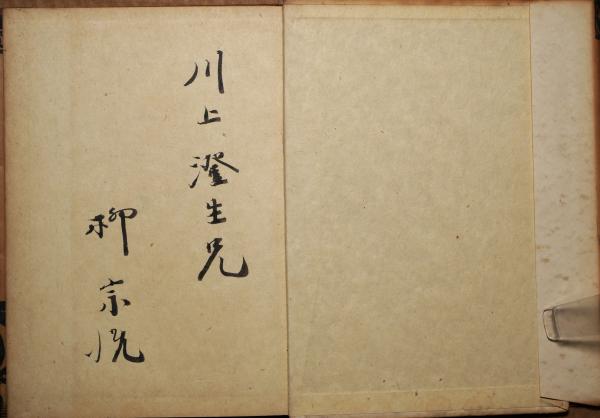 川上澄生兄
柳宗悦